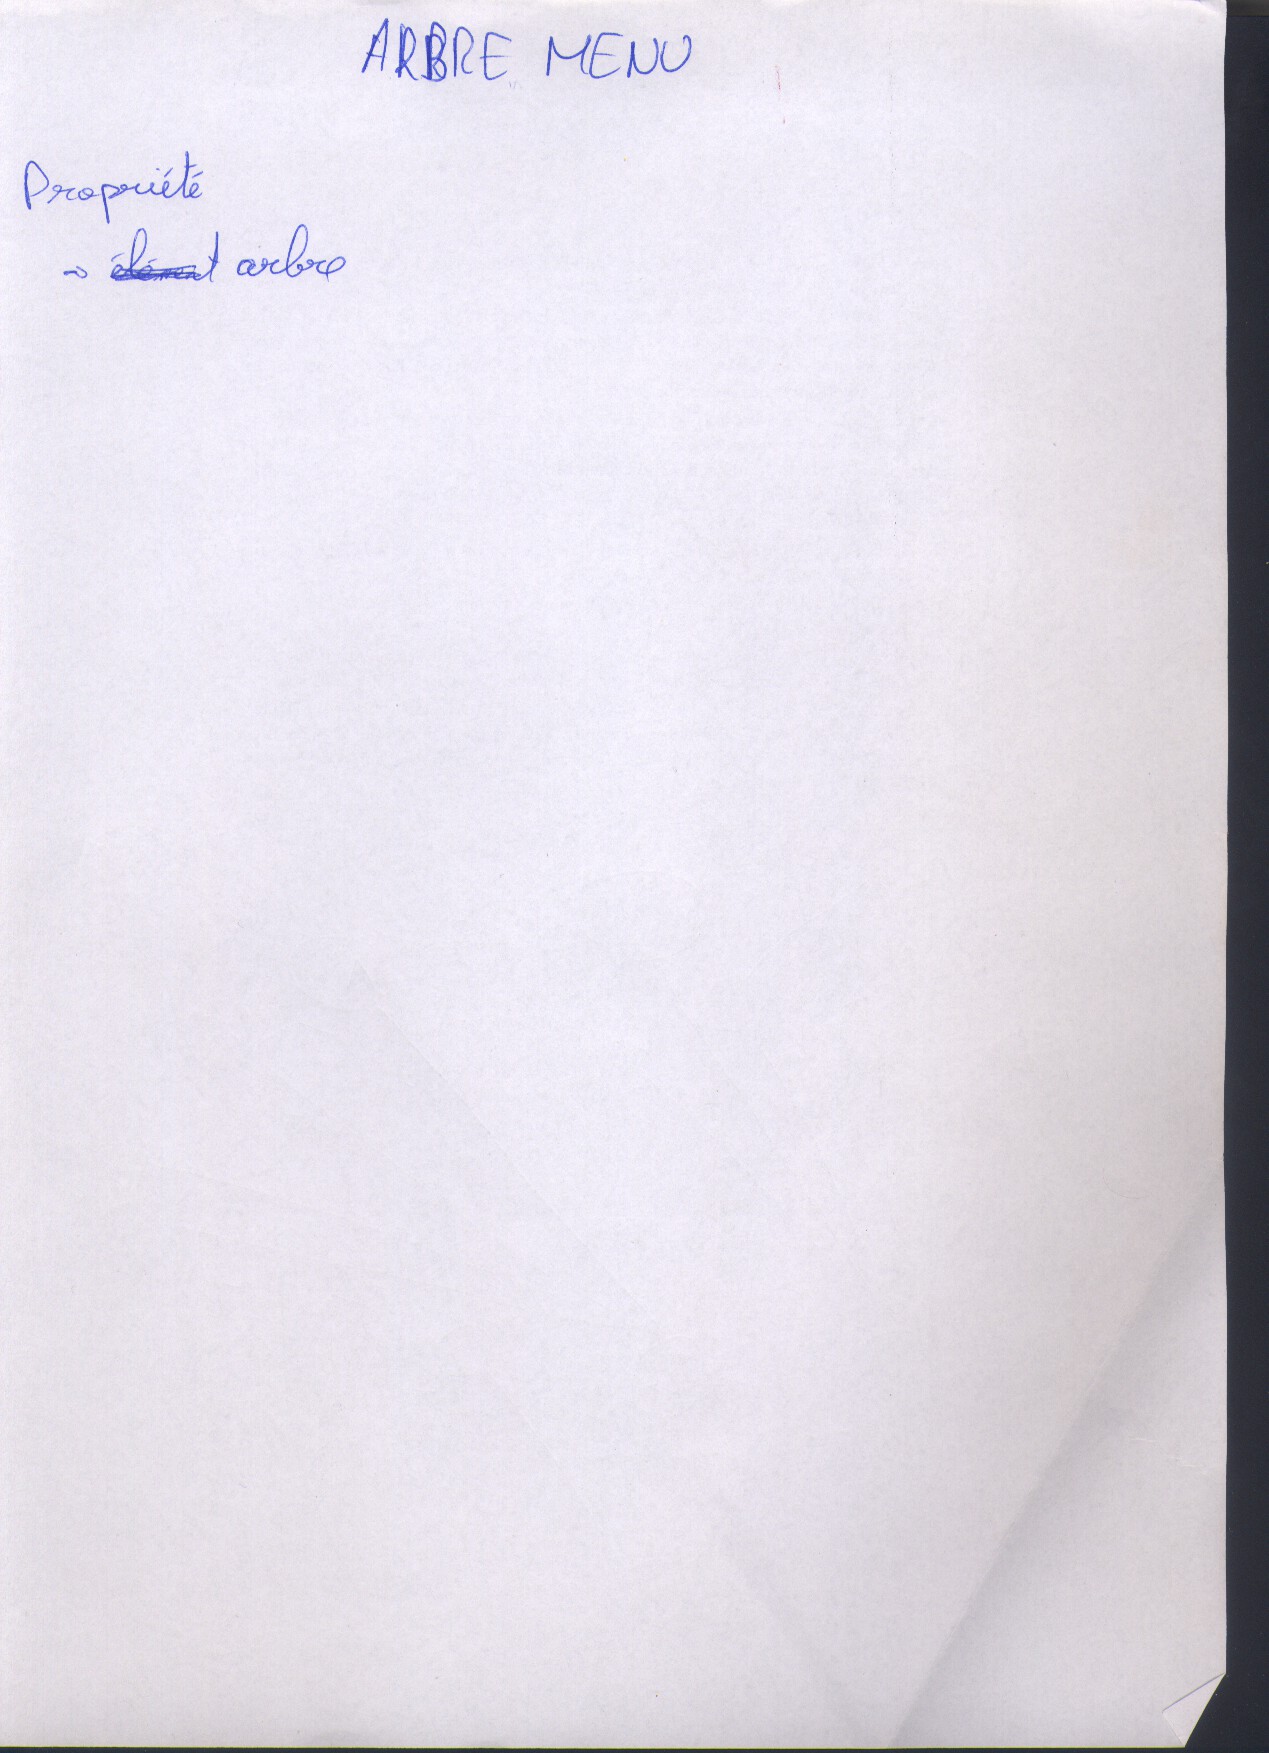 ARBRE MENU
Propriété
→ élément arbre